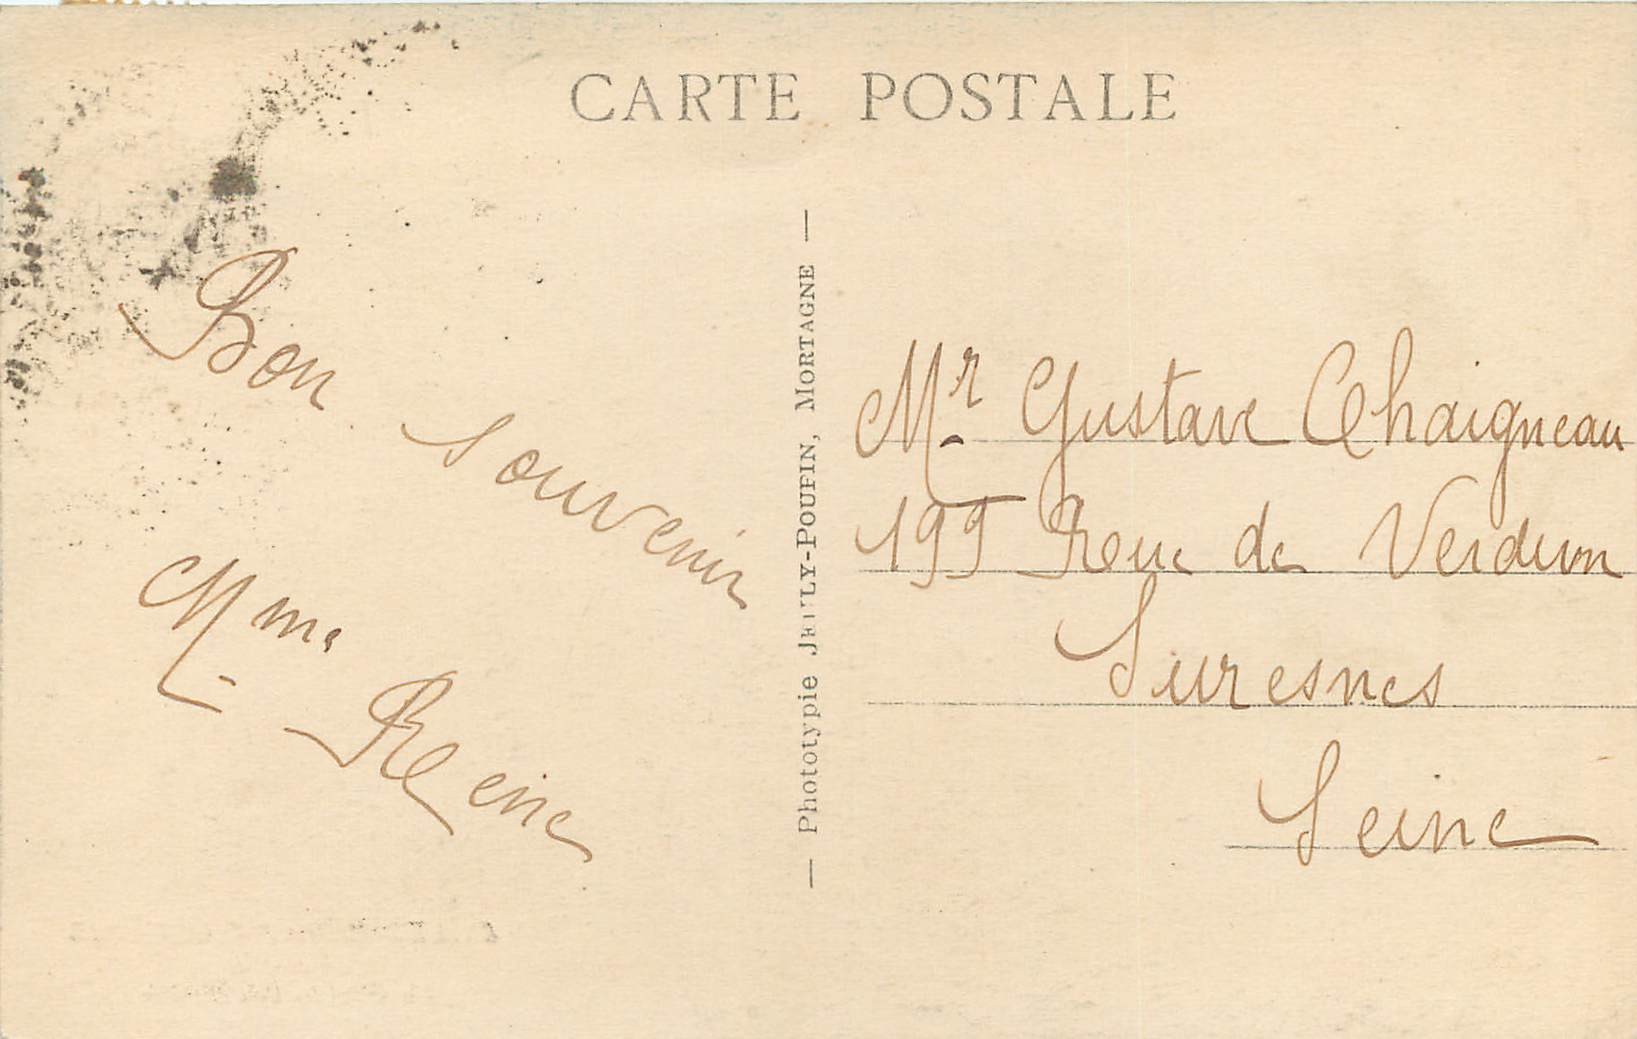 CARTE POSTALE
Bon souvenir
Mme Reine
— Phototypie JEHLY-POUPIN, MORTAGNE —
Mr Gustave Chaigneau
199 Rue de Verdun
Suresnes
Seine